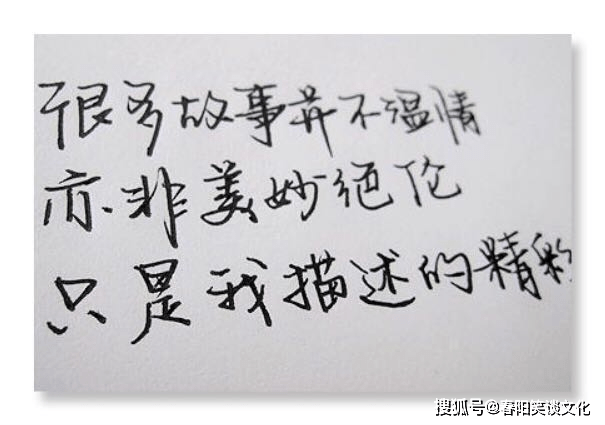 很多故事并不温情
亦非美妙绝伦
只是我描述的精彩
搜狐号@春阳笑谈文化